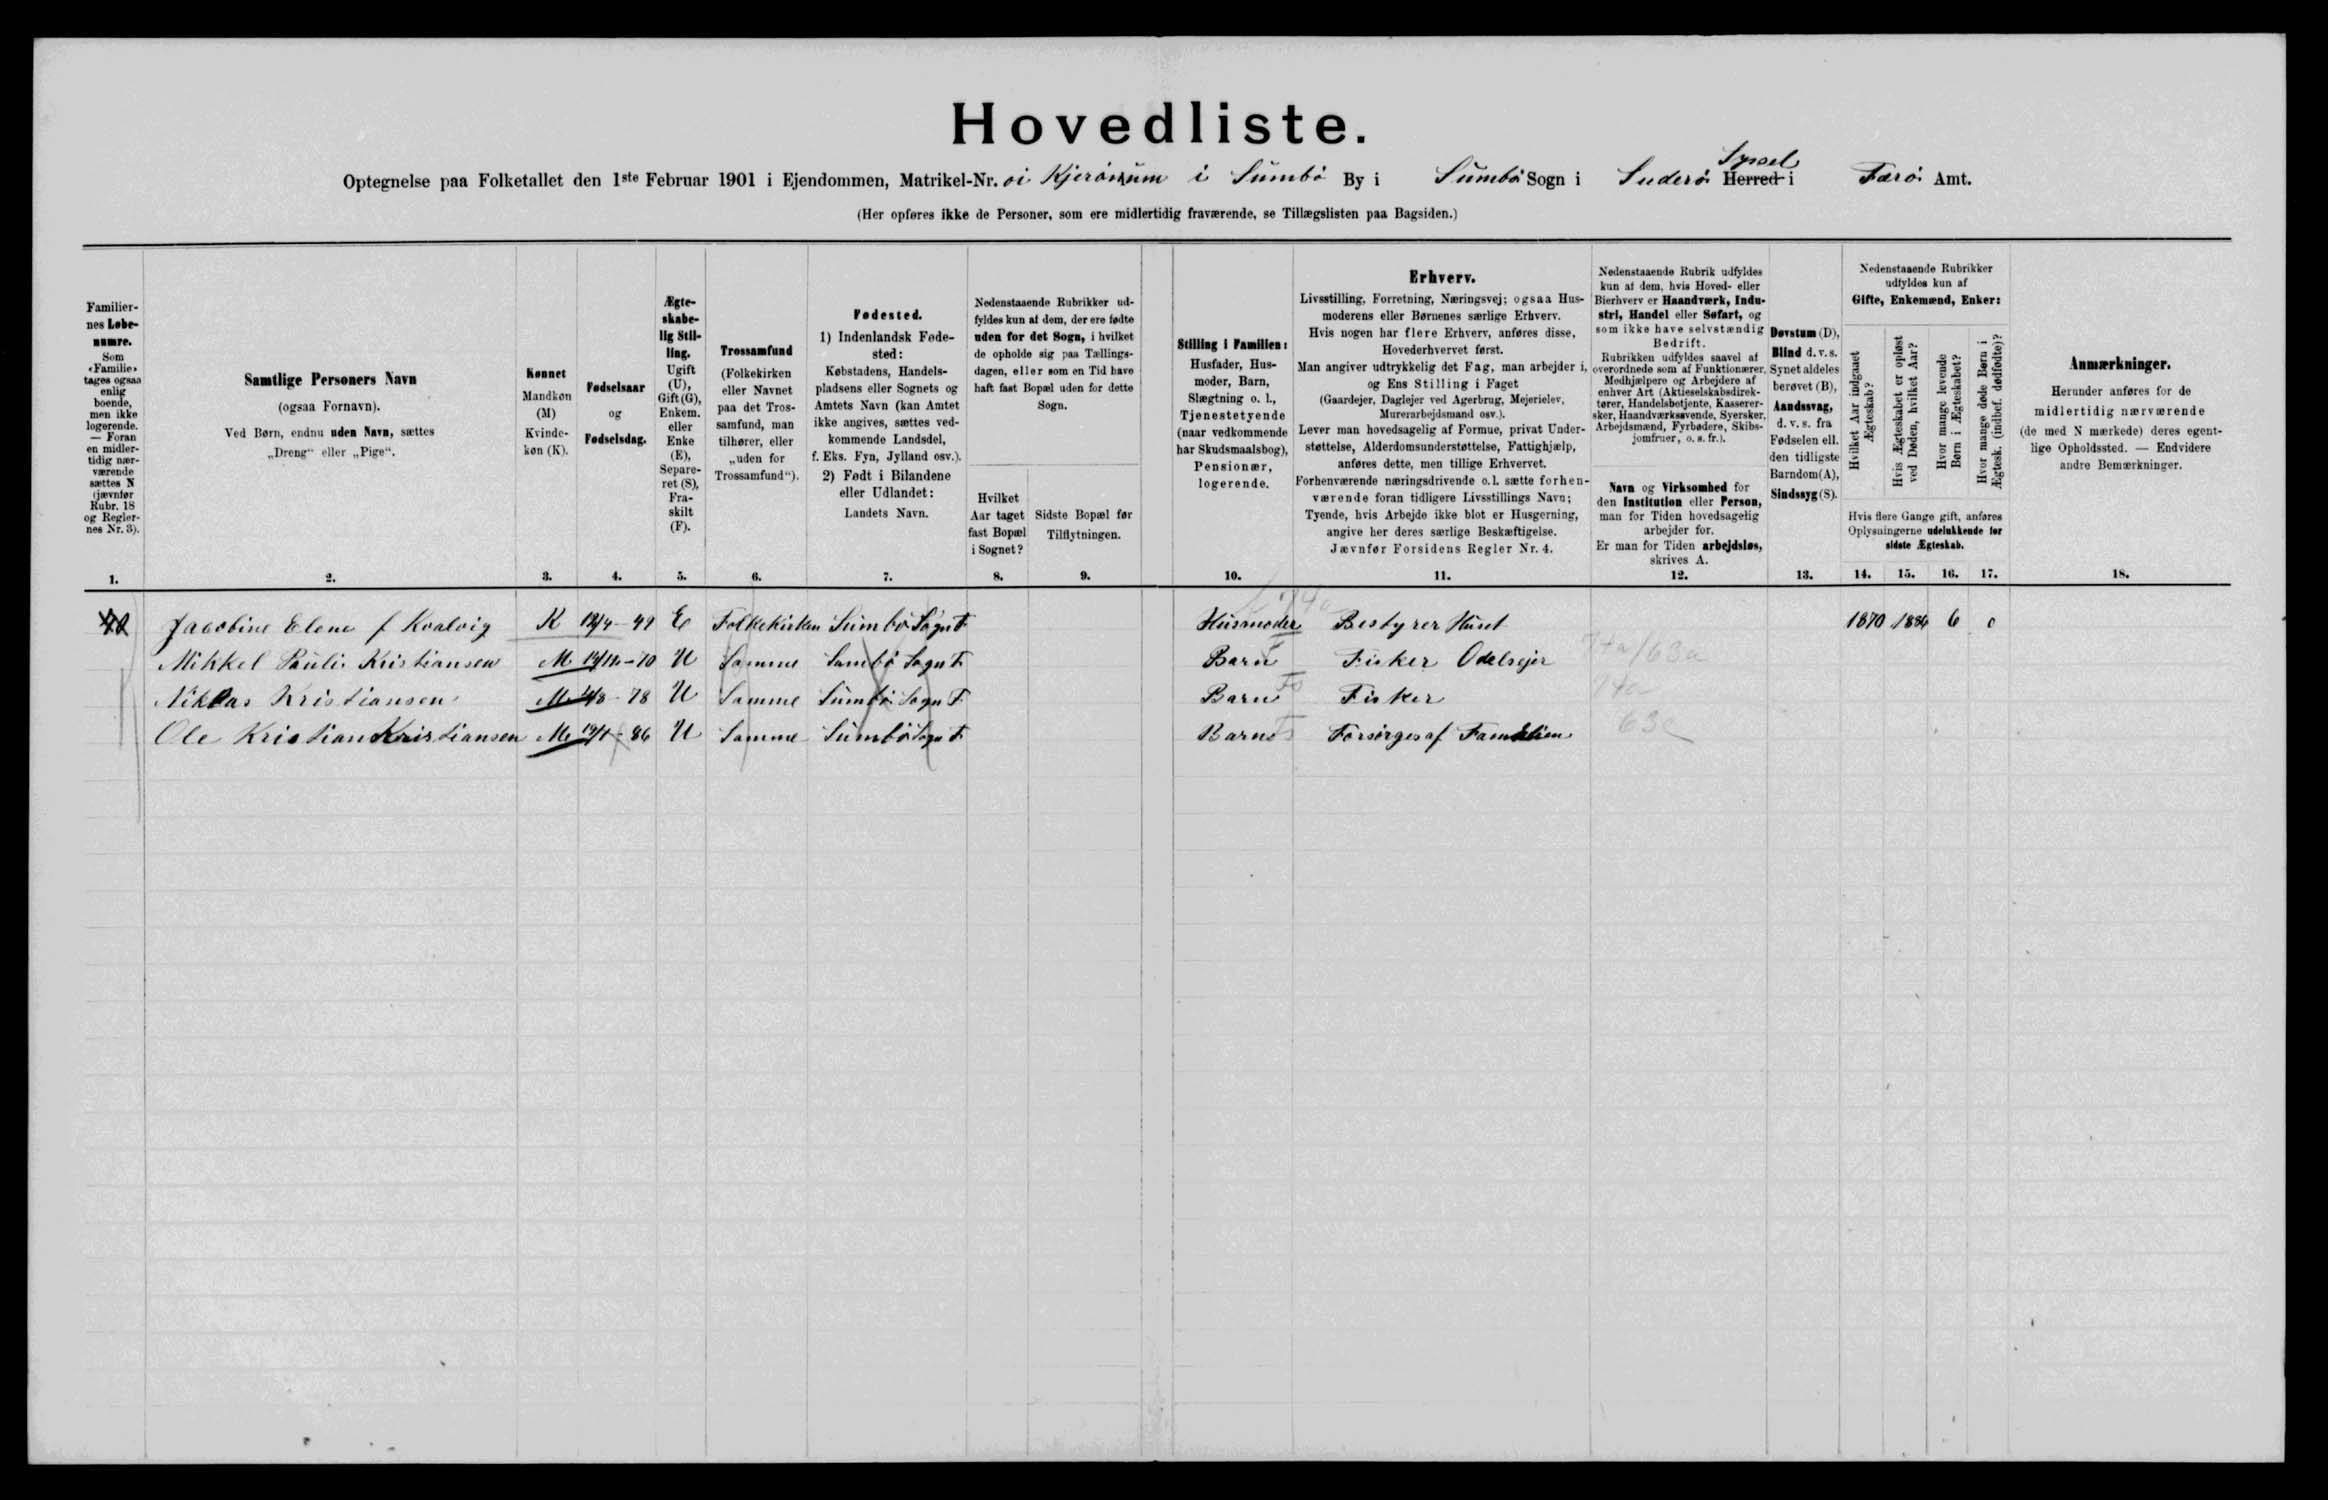 Hovedliste.
Syssel
Optegnelse paa Folketallet den 1ste Februar 1901 i Ejendommen, Matrikel-Nr. oi i Sumbö By i Sumbö Sogn i Suderö Herred i Færö Amt.
(Her opføres ikke de Personer, som ere midlertidig fraværende, se Tillægslisten paa Bagsiden.)
Familier-
nes Løbe-
numre.
Som
«Familie»
tages ogsaa
enlig
boende,
men ikke
logerende.
— Foran
en midler-
tidig nær-
værende
sættes N
(jævnfør
Rubr. 18
og Regler-
nes Nr. 3).
1.
Samtlige Personers Navn
(ogsaa Fornavn).
Ved Børn, endnu uden Navn, sættes
„Dreng“ eller „Pige“.
2.
Kønnet
Mandkøn
(M)
Kvinde-
køn (K).
3.
Fødselsaar
og
Fødselsdag.
4.
Ægte-
skabe-
lig Stil-
ling.
Ugift
(U),
Gift (G),
Enkem.
eller
Enke
(E),
Separe-
ret (S),
Fra-
skilt
(F).
5.
Trossamfund
(Folkekirken
eller Navnet
paa det Tros-
samfund, man
tilhører, eller
„uden for
Trossamfund“).
6.
Fødested.
1) Indenlandsk Føde-
sted:
Købstadens, Handels-
pladsens eller Sognets og
Amtets Navn (kan Amtet
ikke angives, sættes ved-
kommende Landsdel,
f. Eks. Fyn, Jylland osv.).
2) Født i Bilandene
eller Udlandet:
Landets Navn.
7.
Nedenstaaende Rubrikker ud-
fyldes kun af dem, der ere fødte
uden for det Sogn, i hvilket
de opholde sig paa Tællings-
dagen, eller som en Tid have
haft fast Bopæl uden for dette
Sogn.
Hvilket
Aar taget
fast Bopæl
i Sognet?
8.
Sidste Bopæl før
Tilflytningen.
9.
Stilling i Familien:
Husfader, Hus-
moder, Barn,
Slægtning o. l.,
Tjenestetyende
(naar vedkommende
har Skudsmaalsbog),
Pensionær,
logerende.
10.
Erhverv.
Livsstilling, Forretning, Næringsvej; ogsaa Hus-
moderens eller Børnenes særlige Erhverv.
Hvis nogen har flere Erhverv, anføres disse,
Hovederhvervet først.
Man angiver udtrykkelig det Fag, man arbejder i,
og Ens Stilling i Faget
(Gaardejer, Daglejer ved Agerbrug, Mejerielev,
Murerarbejdsmand osv.).
Lever man hovedsagelig af Formue, privat Under-
støttelse, Alderdomsunderstøttelse, Fattighjælp,
anføres dette, men tillige Erhvervet.
Forhenværende næringsdrivende o. l. sætte forhen-
værende foran tidligere Livsstillings Navn;
Tyende, hvis Arbejde ikke blot er Husgerning,
angive her deres særlige Beskæftigelse.
Jævnfør Forsidens Regler Nr. 4.
11.
Nedenstaaende Rubrik udfyldes
kun af dem, hvis Hoved- eller
Bierhverv er Haandværk, Indu-
stri, Handel eller Søfart, og
som ikke have selvstændig
Bedrift.
Rubrikken udfyldes saavel af
overordnede som af Funktionærer,
Medhjælpere og Arbejdere af
enhver Art (Aktieselskabsdirek-
tører, Handelsbetjente, Kasserer-
sker, Haandværksvende, Syersker,
Arbejdsmænd, Fyrbødere, Skibs-
jomfruer, o. s. fr.).
Navn og Virksomhed for
den Institution eller Person,
man for Tiden hovedsagelig
arbejder for.
Er man for Tiden arbejdsløs,
skrives A.
12.
Døvstum (D),
Blind d. v. s.
Synet aldeles
berøvet (B),
Aandssvag,
d. v. s. fra
Fødselen ell.
den tidligste
Barndom (A),
Sindssyg (S).
13.
Nedenstaaende Rubrikker
udfyldes kun af
Gifte, Enkemænd, Enker:
Hvilket Aar indgaaet
Ægteskab?
Hvis Ægteskabet er opløst
ved Døden, hvilket Aar?
Hvor mange levende
Børn i Ægteskabet?
Hvor mange døde Børn i
Ægtesk. (indbef. dødfødte)?
Hvis flere Gange gift, anføres
Oplysningerne udelukkende for
sidste Ægteskab.
14. 15. 16. 17.
Anmærkninger.
Herunder anføres for de
midlertidig nærværende
(de med N mærkede) deres egent-
lige Opholdssted. — Endvidere
andre Bemærkninger.
18.
Jacobine Elene f Kvalvig K 12/4-49 E Folkekirken Sumbö Sogn F Husmoder Bestyrer Huset 1870 1886 6 0
Mikkel Pauli Kristiansen M 70 U Samme Sumbö Sogn F Barn Fisker Odelsejer 74a/63a
Niklas Kristiansen M 78 U Samme Sumbö Sogn F Barn Fisker 74a
Ole Kristian Kristiansen M 86 U Samme Sumbö Sogn F Barn Forsörges af Familien 63c